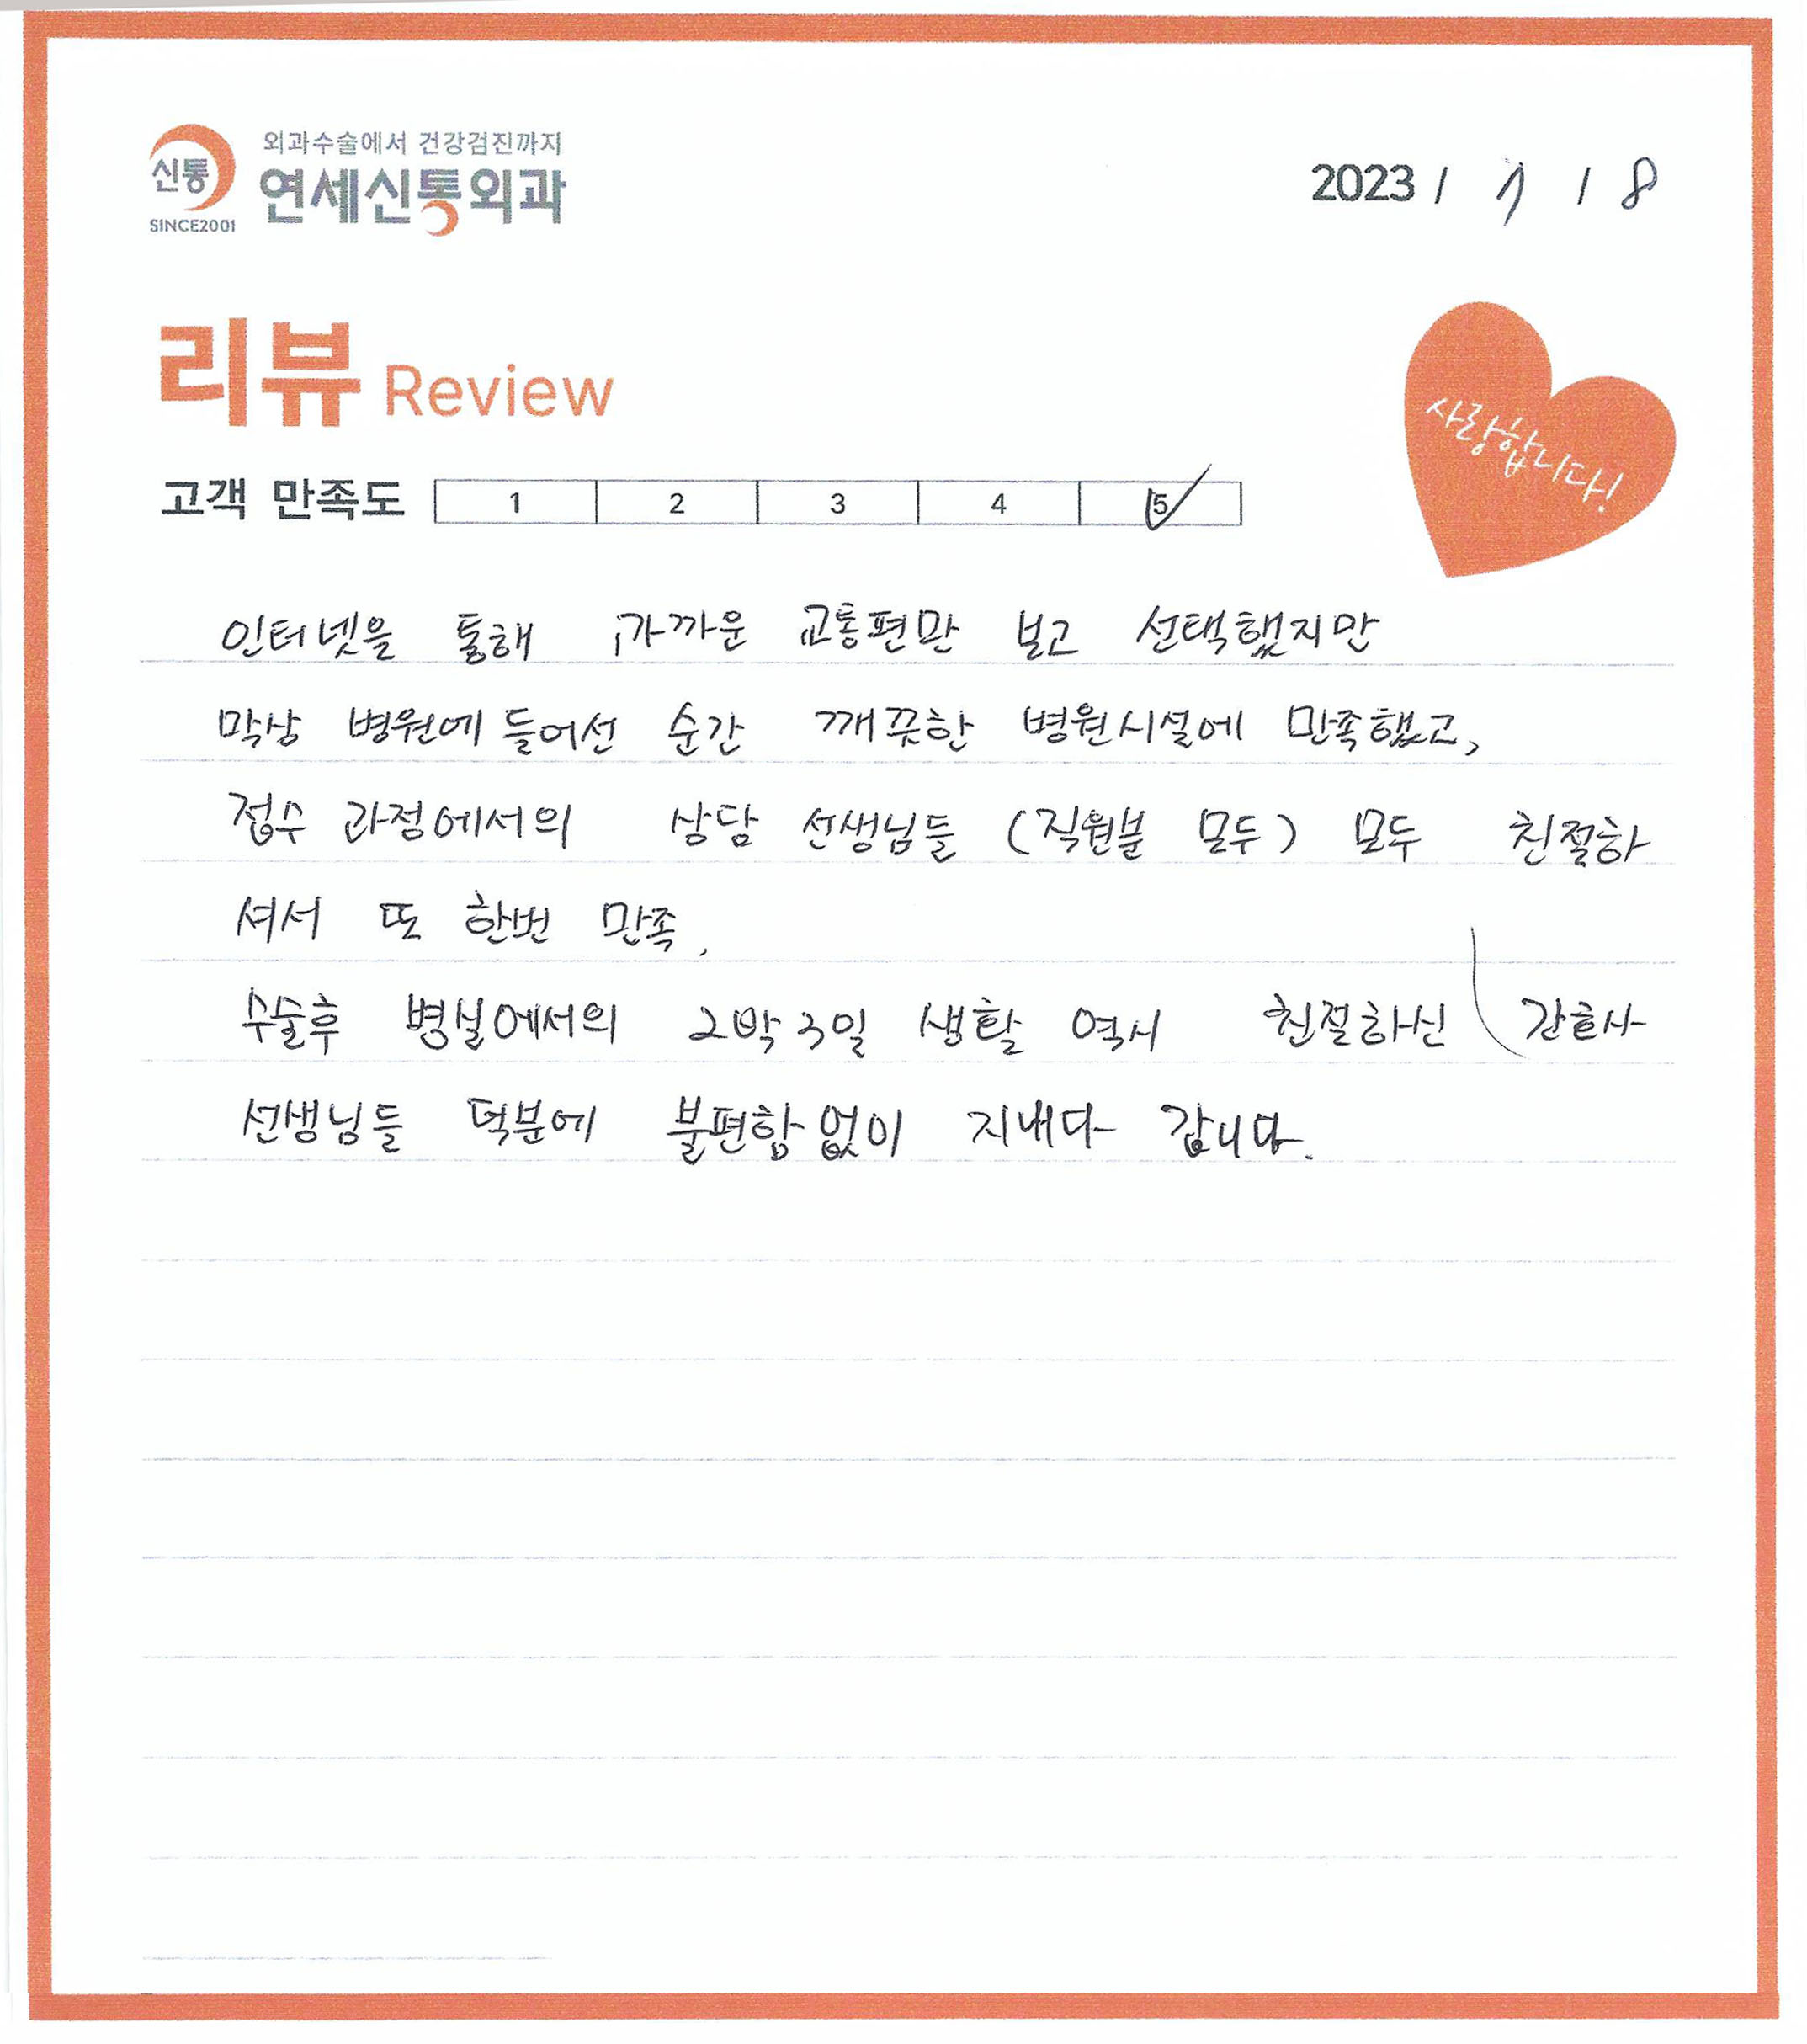 신통
SINCE2001
외과수술에서 건강검진까지
연세신통외과
2023 / 7 / 8
리뷰 Review
사랑합니다!
고객 만족도 1 2 3 4 5
인터넷을 통해 가까운 교통편만 보고 선택했지만
막상 병원에 들어선 순간 깨끗한 병원시설에 만족했고,
접수 과정에서의 상담 선생님들 (직원분 모두) 모두 친절하
셔서 또 한번 만족,
수술후 병실에서의 2박3일 생활 역시 친절하신 간호사
선생님들 덕분에 불편함없이 지내다 갑니다.